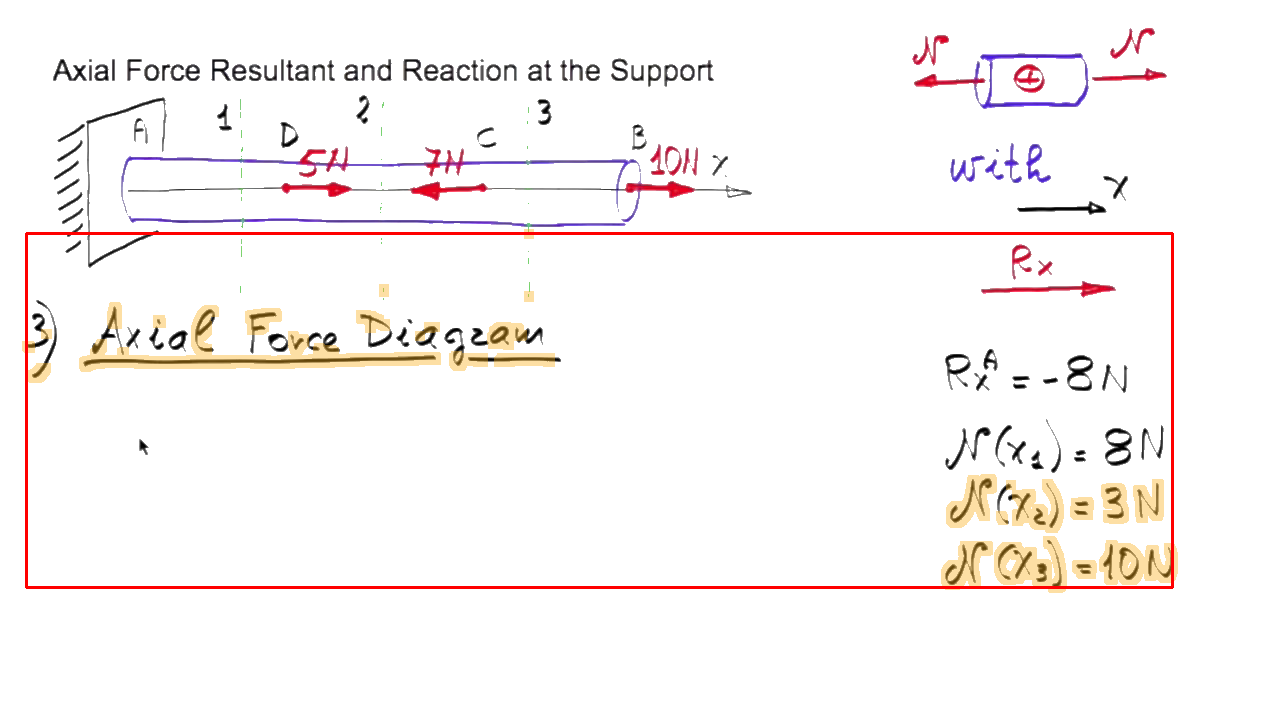 Axial Force Resultant and Reaction at the Support
N N
1 2 3
A D C B
5N 7N 10N x
with
x
Rx
3) Axial Force Diagram
Rx^A = -8N
N(x1) = 8N
N(x2) = 3N
N(x3) = 10N